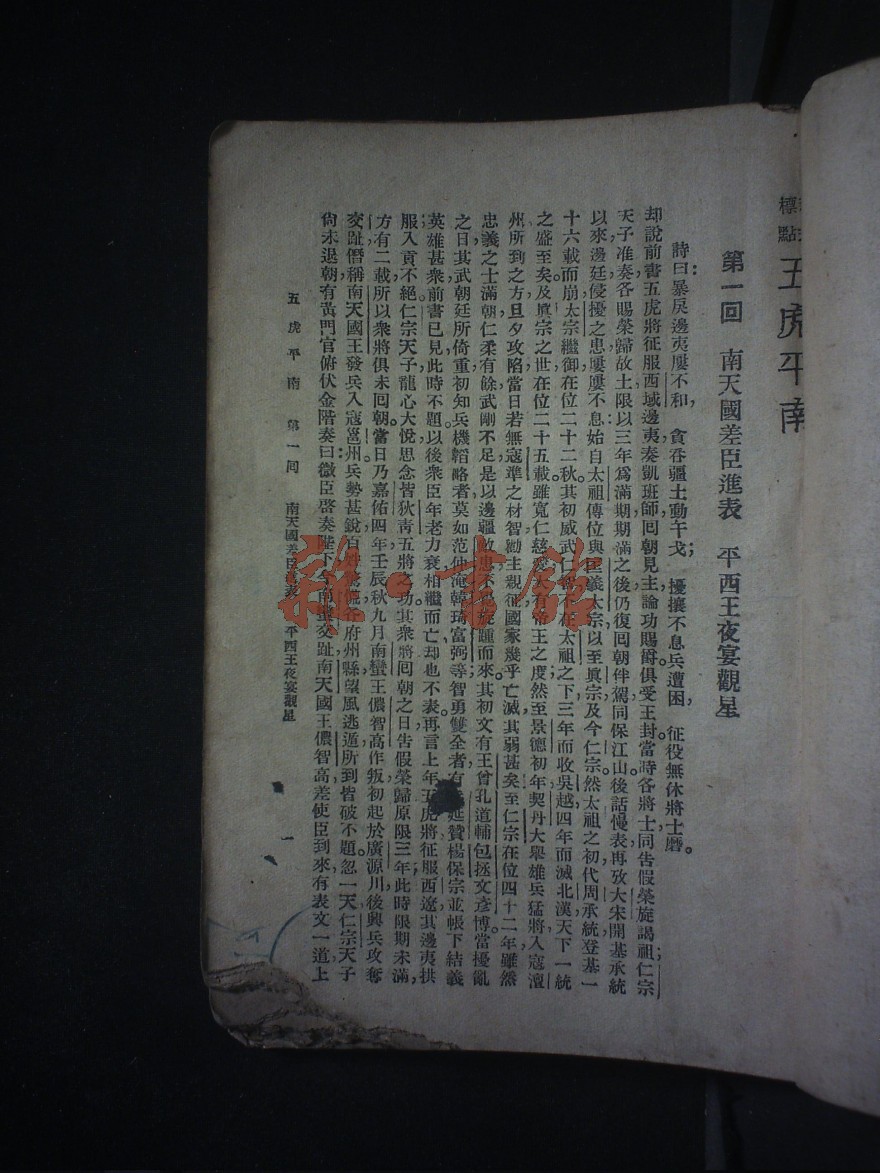 標點 五虎平南
第一回　南天國差臣進表　平西王夜宴觀星
詩曰：暴戾邊夷屢不和，貪吞疆土動干戈；擾攘不息兵遭困，征役無休將士磨。
却說前書五虎將征服西域邊夷，奏凱班師回朝見主，論功賜爵，俱受王封，當時各將士同告假榮旋謁祖；仁宗
天子准奏，各賜榮歸故土，限以三年爲滿期，期滿之後，仍復回朝伴駕，同保江山。後話慢表，再攷大宋開基承統
以來，邊廷侵擾之患，屢屢不息：始自太祖傳位與匡義太宗，以至眞宗及今仁宗。然太祖之初，代周承統，登基一
十六載而崩；太宗繼御，在位二十二秋。其初威武仁 在太祖之下，三年而收吳越，四年而滅北漢，天下一統
之盛至矣。及眞宗之世，在位二十五載，雖寬仁慈愛，大有帝王之度，然至景德初年，契丹大舉雄兵猛將，入寇澶
州，所到之方，旦夕攻陷，當日若無寇準之材智，勸主親征，國家幾乎亡滅，其弱甚矣。至仁宗在位四十二年，雖然
忠義之士滿朝，仁柔有餘，武剛不足，是以邊疆 患，不 旋踵而來。其初文有王曾孔道輔包拯文彥博。當擾亂
之日，其武朝廷所倚重，初知兵機韜略者，莫如范仲淹韓琦富弼等；智勇雙全者，有 延贊楊保宗並帳下結義
英雄甚衆，前書已見，此時不題。以後衆臣年老力衰，相繼而亡，却也不表。再言上年五虎將征服西遼，其邊夷拱
服，入貢不絕，仁宗天子龍心大悅，思念皆狄靑五將之功，其衆將回朝之日，告假榮歸，原限三年，此時限期未滿，
方有二載，所以衆將俱未回朝。當日乃嘉佑四年壬辰秋九月，南蠻王儂智高作叛，初起於廣源川，後興兵攻奪
交趾，僭稱南天國王，發兵入寇邕州，兵勢甚銳，百 府州縣望風逃遁，所到皆破，不題。忽一天，仁宗天子
尙未退朝，有黃門官俯伏金階奏曰：微臣啓奏陛下，今南蠻交趾南天國王儂智高，差使臣到來，有表文一道上
五虎平南　第一回　南天國差臣進表　平西王夜宴觀星　一